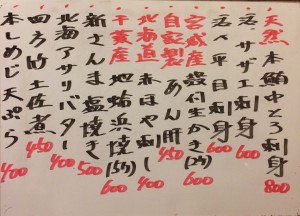 天然本鮪中とろ刺身 800
活サザエ刺身 600
活〆平目刺身 600
宮城産殻付生かき(2ケ) 600
自家製あん肝 450
北海道赤ほや刺し 400
千葉産地蛤浜焼(5ケ) 600
新さんま塩焼き 500
北海アサリバター 400
四方竹土佐煮 450
本しめじ天ぷら 400